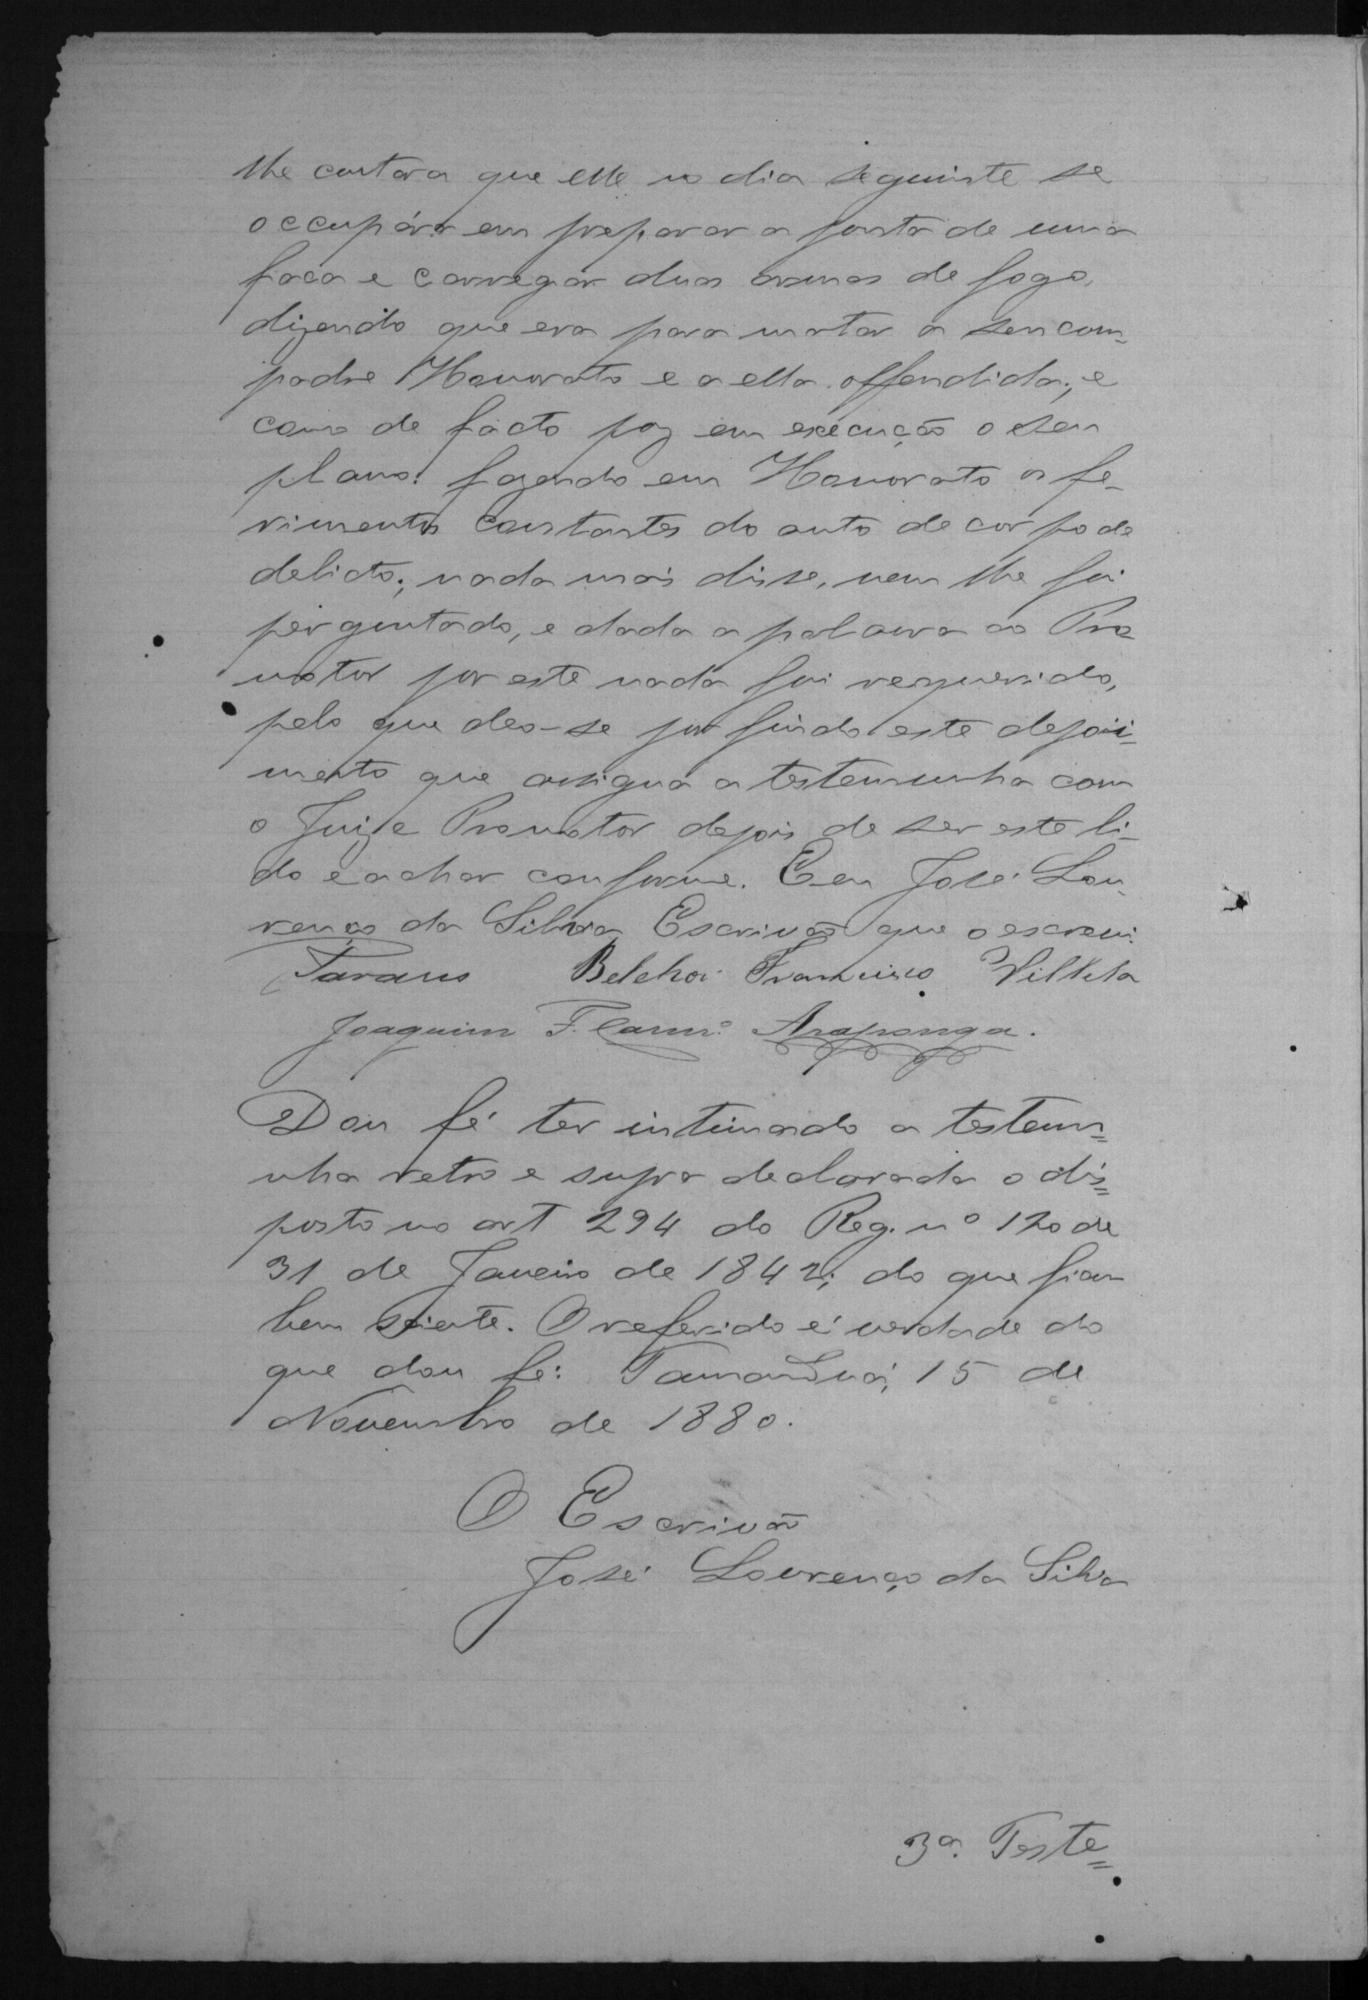 lhe contara que elle no dia seguinte se
occupára em preparar a ponta de uma
faca e carregar duas armas de fogo,
dizendo que era para matar a seu com-
padre Honorato e a ella offendida; e
como de facto poz em execução o seu
plano: fazendo em Honorato os fe-
rimentos constantes do auto de corpo de
delicto; nada mais disse, nem lhe foi
perguntado, e dada a palavra ao Pro
motor por este nada foi requerido,
pelo que deo-se por findo este depoi-
mento que assigna a testemunha com
o Juiz e Promotor depois de ser este li-
do e achar conforme. Eu José Lou-
renço da Silva Escrivão que o escrevi.
Belchior Francisco Villela
Joaquim Araponga.
Dou fé ter intimado a testem=
nha retro e supra declarada o dis=
posto no art 294 do Reg. nº 120 de
31 de Janeiro de 1842; do que ficou
bem sciente. O referido é verdade do
que dou fé: Tamanduá, 15 de
Novembro de 1880.
O Escrivão
José Lourenço da Silva
3ª. Teste=